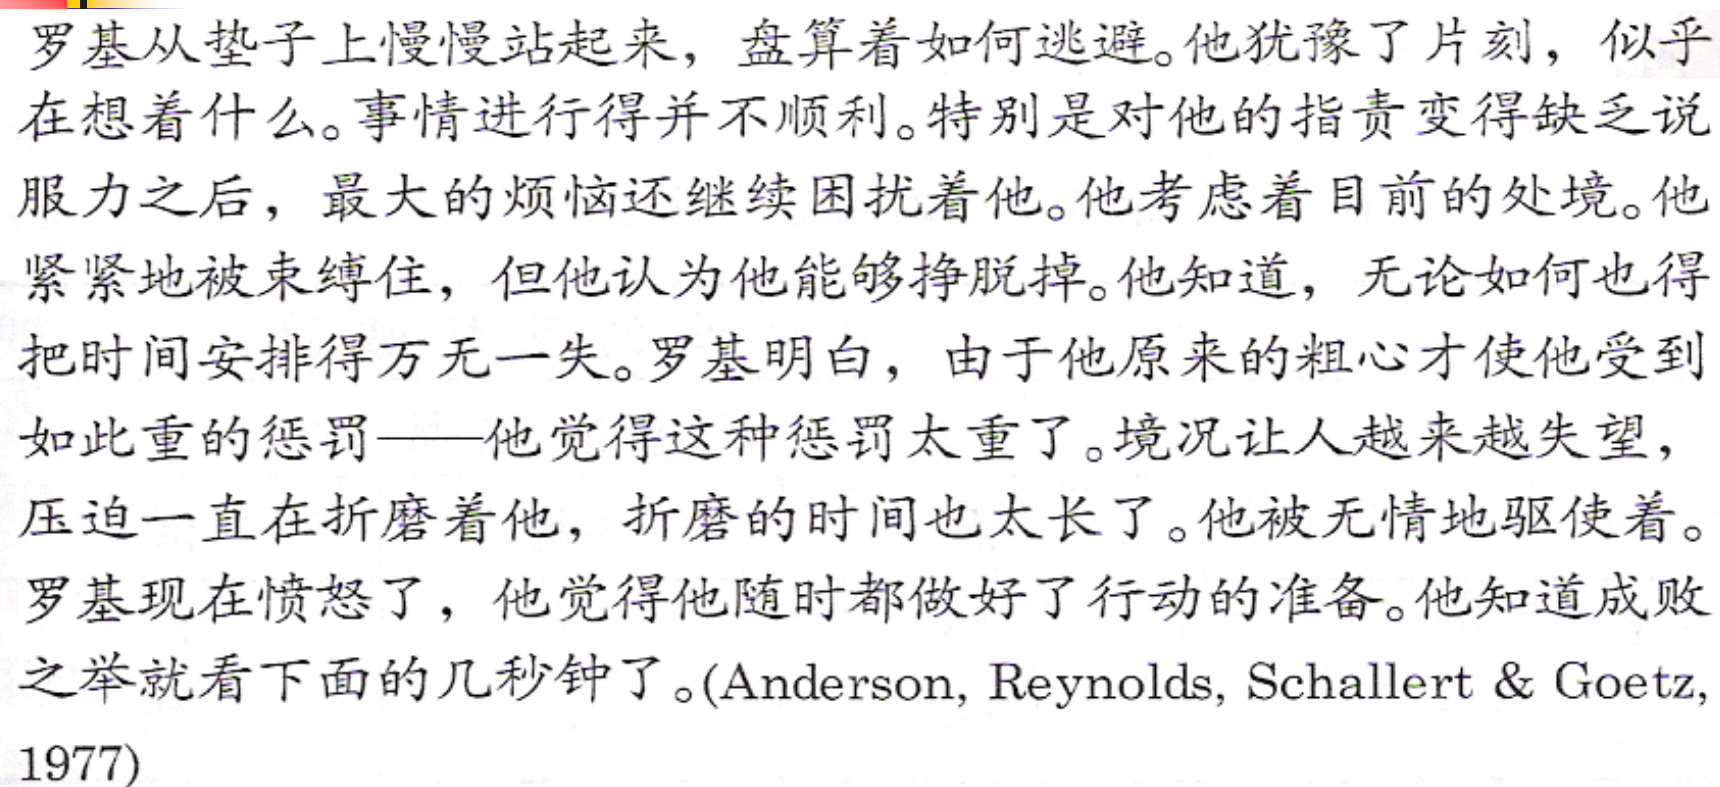 罗基从垫子上慢慢站起来，盘算着如何逃避。他犹豫了片刻，似乎
在想着什么。事情进行得并不顺利。特别是对他的指责变得缺乏说
服力之后，最大的烦恼还继续困扰着他。他考虑着目前的处境。他
紧紧地被束缚住，但他认为他能够挣脱掉。他知道，无论如何也得
把时间安排得万无一失。罗基明白，由于他原来的粗心才使他受到
如此重的惩罚——他觉得这种惩罚太重了。境况让人越来越失望，
压迫一直在折磨着他，折磨的时间也太长了。他被无情地驱使着。
罗基现在愤怒了，他觉得他随时都做好了行动的准备。他知道成败
之举就看下面的几秒钟了。(Anderson, Reynolds, Schallert & Goetz,
1977)